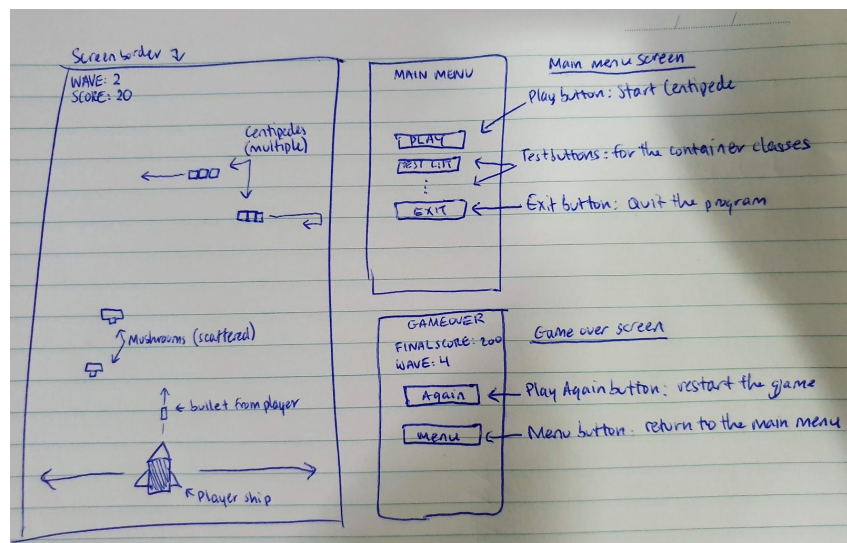 Screen border
WAVE: 2
SCORE: 20
Centipedes
(multiple)
Mushrooms (scattered)
bullet from player
Player ship
MAIN MENU
PLAY
TEST LIST
EXIT
Main menu screen
Play button: Start Centipede
Test buttons: for the container classes
Exit button: Quit the program
GAMEOVER
FINAL SCORE: 200
WAVE: 4
Again
Menu
Game over screen
Play Again button: restart the game
Menu button: return to the main menu